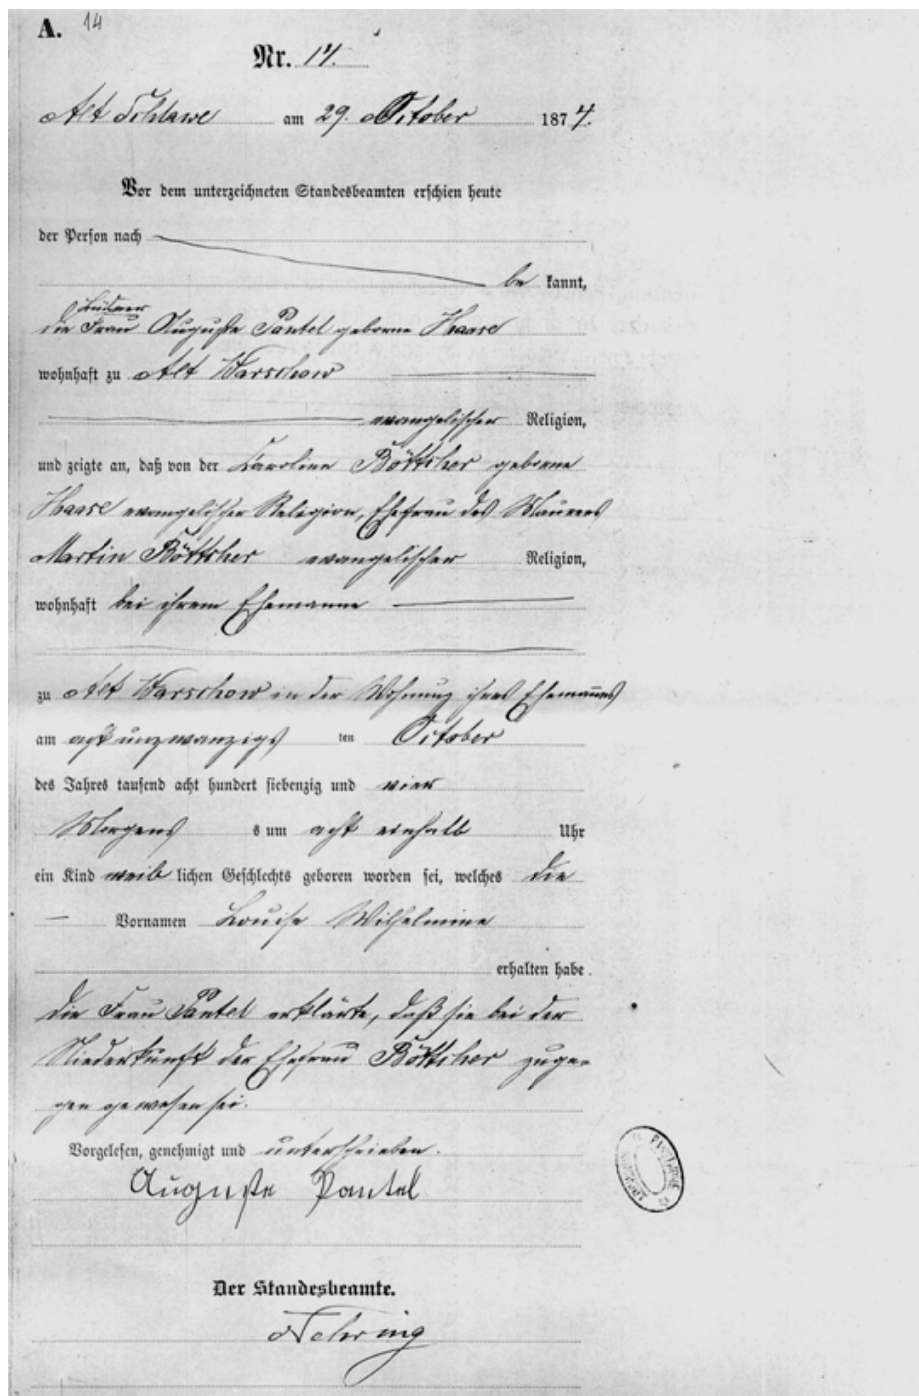 A. 14
Nr. 14.
Alt Schlawe am 29. October 1874.
Vor dem unterzeichneten Standesbeamten erschien heute
der Person nach
be kannt,
Büdner
die Frau Auguste Pantel geborne Haase
wohnhaft zu Alt Warschow
evangelischer Religion,
und zeigte an, daß von der Caroline Böttcher geborne
Haase evangelischer Religion, Ehefrau des Maurers
Martin Böttcher evangelischer Religion,
wohnhaft bei ihrem Ehemanne
zu Alt Warschow in der Wohnung ihres Ehemannes
am acht unzwanzigs ten October
des Jahres tausend acht hundert siebenzig und vier
Morgens s um acht einhalb Uhr
ein Kind weib lichen Geschlechts geboren worden sei, welches die
Vornamen Louise Wilhelmine
erhalten habe.
Die Frau Pantel erklärte, daß sie bei der
Niederkunft der Ehefrau Böttcher zuge-
gen gewesen sei.
Vorgelesen, genehmigt und unterschrieben.
Auguste Pantel
Der Standesbeamte.
Nehring